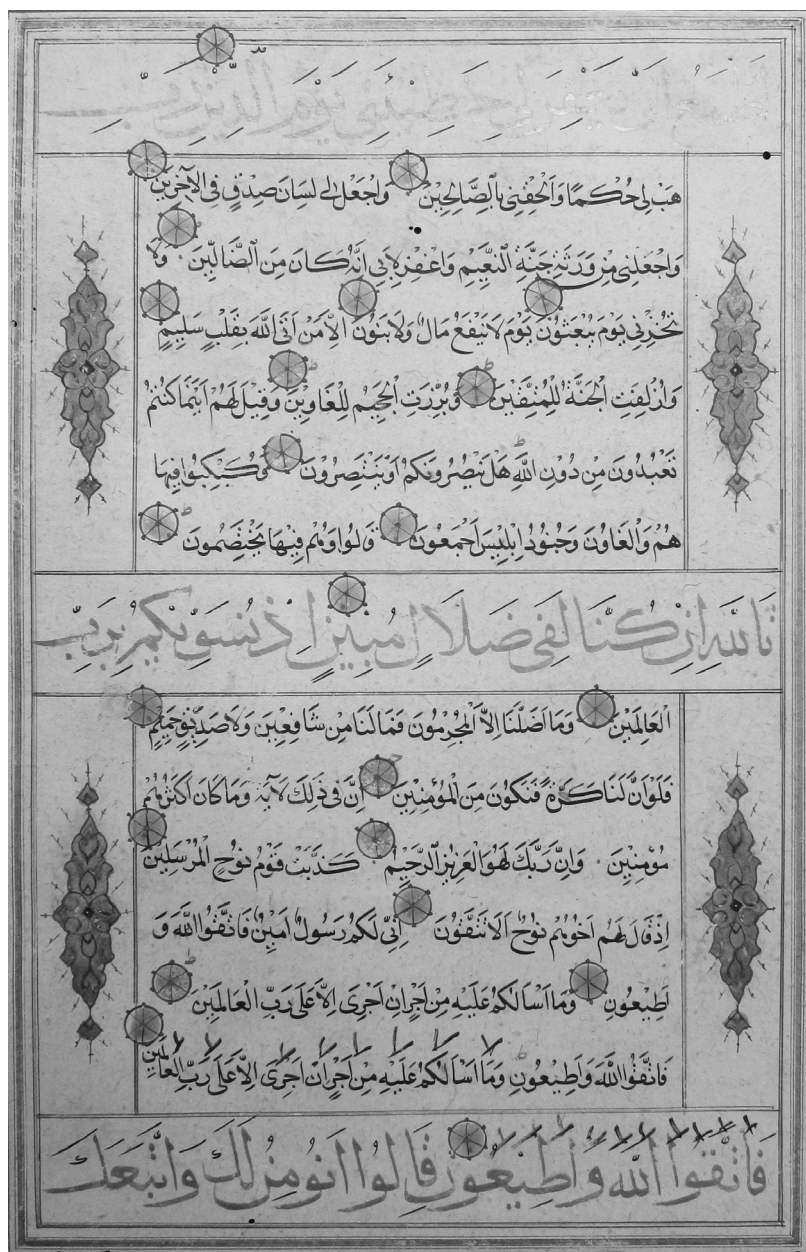 اَطْمَعُ اَنْ يَغْفِرَ لِي خَطِيئَتِي يَوْمَ الدِّينِ رَبِّ
هَبْ لِي حُكْمًا وَاَلْحِقْنِي بِالصَّالِحِينَ وَاجْعَلْ لِي لِسَانَ صِدْقٍ فِي الْاٰخِرِينَ
وَاجْعَلْنِي مِنْ وَرَثَةِ جَنَّةِ النَّعِيمِ وَاغْفِرْ لِاَبِي اِنَّهُ كَانَ مِنَ الضَّالِّينَ وَلَا
تُخْزِنِي يَوْمَ يُبْعَثُونَ يَوْمَ لَا يَنْفَعُ مَالٌ وَلَا بَنُونَ اِلَّا مَنْ اَتَى اللَّهَ بِقَلْبٍ سَلِيمٍ
وَاُزْلِفَتِ الْجَنَّةُ لِلْمُتَّقِينَ وَبُرِّزَتِ الْجَحِيمُ لِلْغَاوِينَ وَقِيلَ لَهُمْ اَيْنَمَا كُنْتُمْ
تَعْبُدُونَ مِنْ دُونِ اللَّهِ هَلْ يَنْصُرُونَكُمْ اَوْ يَنْتَصِرُونَ فَكُبْكِبُوا فِيهَا
هُمْ وَالْغَاوُنَ وَجُنُودُ اِبْلِيسَ اَجْمَعُونَ قَالُوا وَهُمْ فِيهَا يَخْتَصِمُونَ
تَاللَّهِ اِنْ كُنَّا لَفِي ضَلَالٍ مُبِينٍ اِذْ نُسَوِّيكُمْ بِرَبِّ
الْعَالَمِينَ وَمَا اَضَلَّنَا اِلَّا الْمُجْرِمُونَ فَمَا لَنَا مِنْ شَافِعِينَ وَلَا صَدِيقٍ حَمِيمٍ
فَلَوْ اَنَّ لَنَا كَرَّةً فَنَكُونَ مِنَ الْمُؤْمِنِينَ اِنَّ فِي ذٰلِكَ لَاٰيَةً وَمَا كَانَ اَكْثَرُهُمْ
مُؤْمِنِينَ وَاِنَّ رَبَّكَ لَهُوَ الْعَزِيزُ الرَّحِيمُ كَذَّبَتْ قَوْمُ نُوحٍ الْمُرْسَلِينَ
اِذْ قَالَ لَهُمْ اَخُوهُمْ نُوحٌ اَلَا تَتَّقُونَ اِنِّي لَكُمْ رَسُولٌ اَمِينٌ فَاتَّقُوا اللَّهَ وَ
اَطِيعُونِ وَمَا اَسْاَلُكُمْ عَلَيْهِ مِنْ اَجْرٍ اِنْ اَجْرِىَ اِلَّا عَلَى رَبِّ الْعَالَمِينَ
فَاتَّقُوا اللَّهَ وَاَطِيعُونِ وَمَا اَسْاَلُكُمْ عَلَيْهِ مِنْ اَجْرٍ اِنْ اَجْرِىَ اِلَّا عَلَى رَبِّ الْعَالَمِينَ
فَاتَّقُوا اللَّهَ وَاَطِيعُونِ قَالُوا اَنُؤْمِنُ لَكَ وَاتَّبَعَكَ